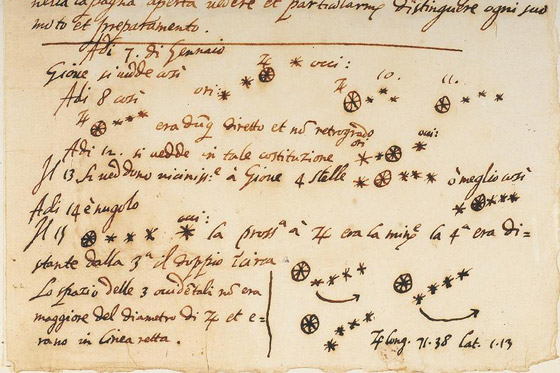 nella pagina aperta vedere et particularmᵉ distinguere ogni suo
moto et preparamento.
Adi 7. di Gennaio
Gione si vedde così ♃ occi:
ori:
Adi 8 così ♃ 10. 11.
♃ era dũq diretto et nõ retrogrado
Adi 12. si vedde in tale costituzione ori occi:
Il 13 si veddono vicinissᵉ à Giove 4 stelle ò meglio così
Adi 14 è nugolo
Il 15 occi: la prossᵃ à ♃ era la minᵉ la 4ᵃ era di=
stante dalla 3ᵃ il doppio ĩcirca
Lo spazio delle 3 occidẽtali nõ era
maggiore del diametro di ♃ et e=
rano in linea retta.
♃ long. 71.38 lat. 1.13